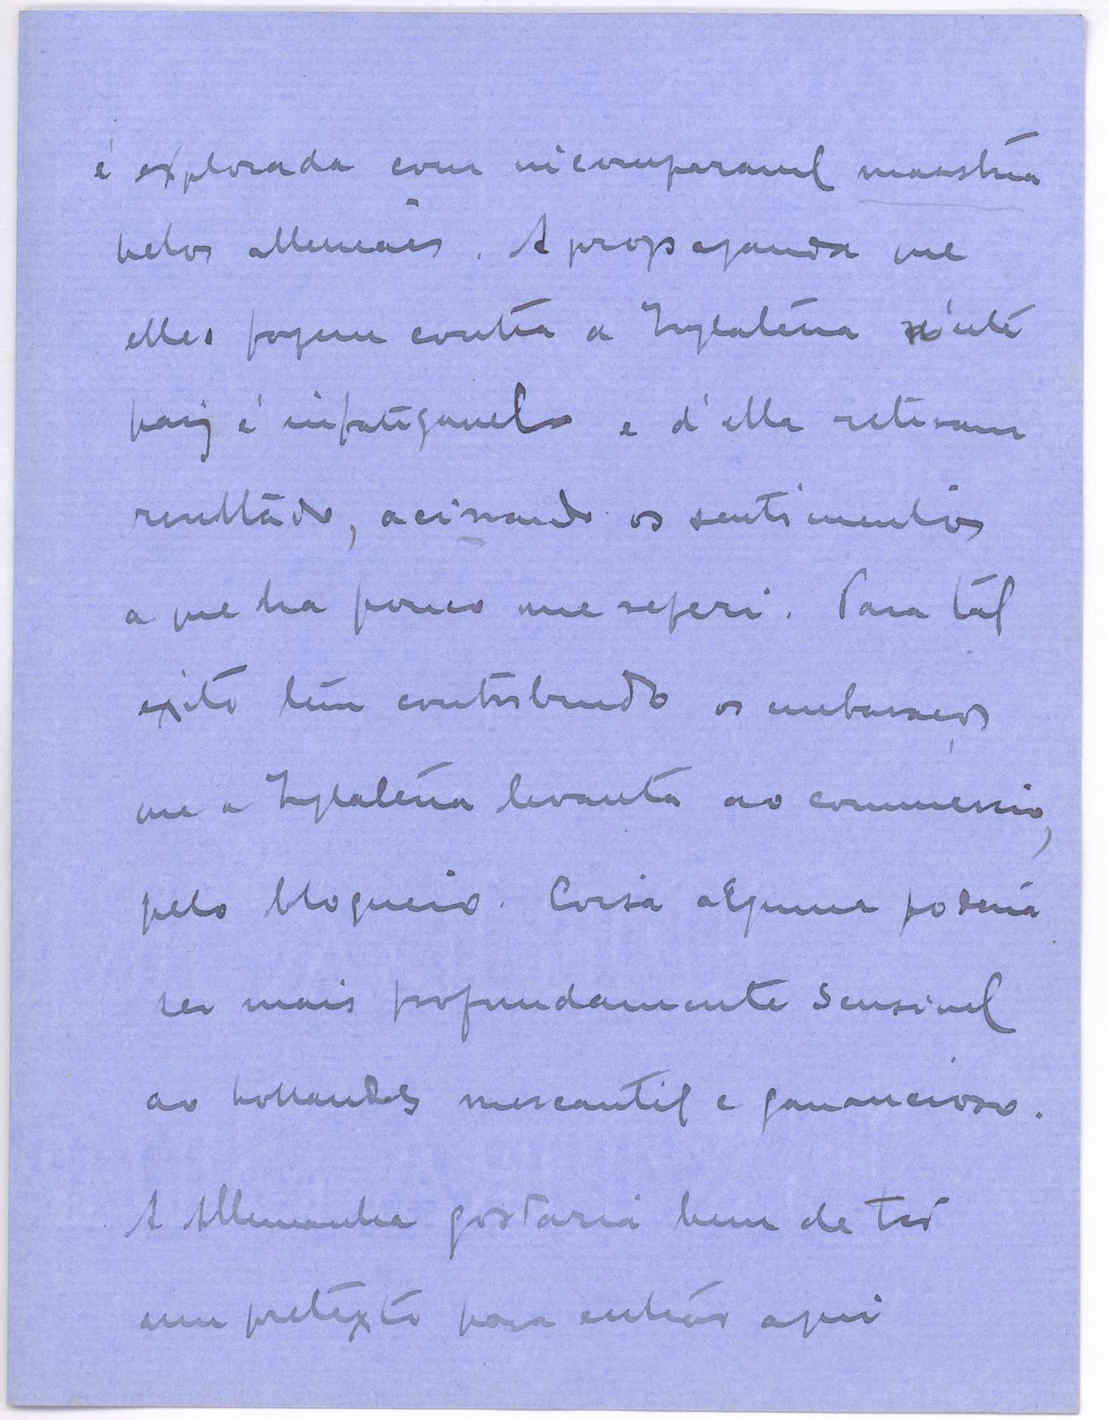 é explorada com incomparavel maestria
pelos allemães. A propaganda que
elles fazem contra a Inglaterra n'este
paiz é infatigavel e d'ella retiram
resultado, acirrando os sentimentos
a que ha pouco me referi. Para tal
exito têm contribuido os embaraços
que a Inglaterra levanta ao commercio,
pelo bloqueio. Coisa alguma poderia
ser mais profundamente sensivel
ao hollandês mercantil e ganancioso.
A Allemanha gostaria bem de ter
um pretexto para entrar aqui